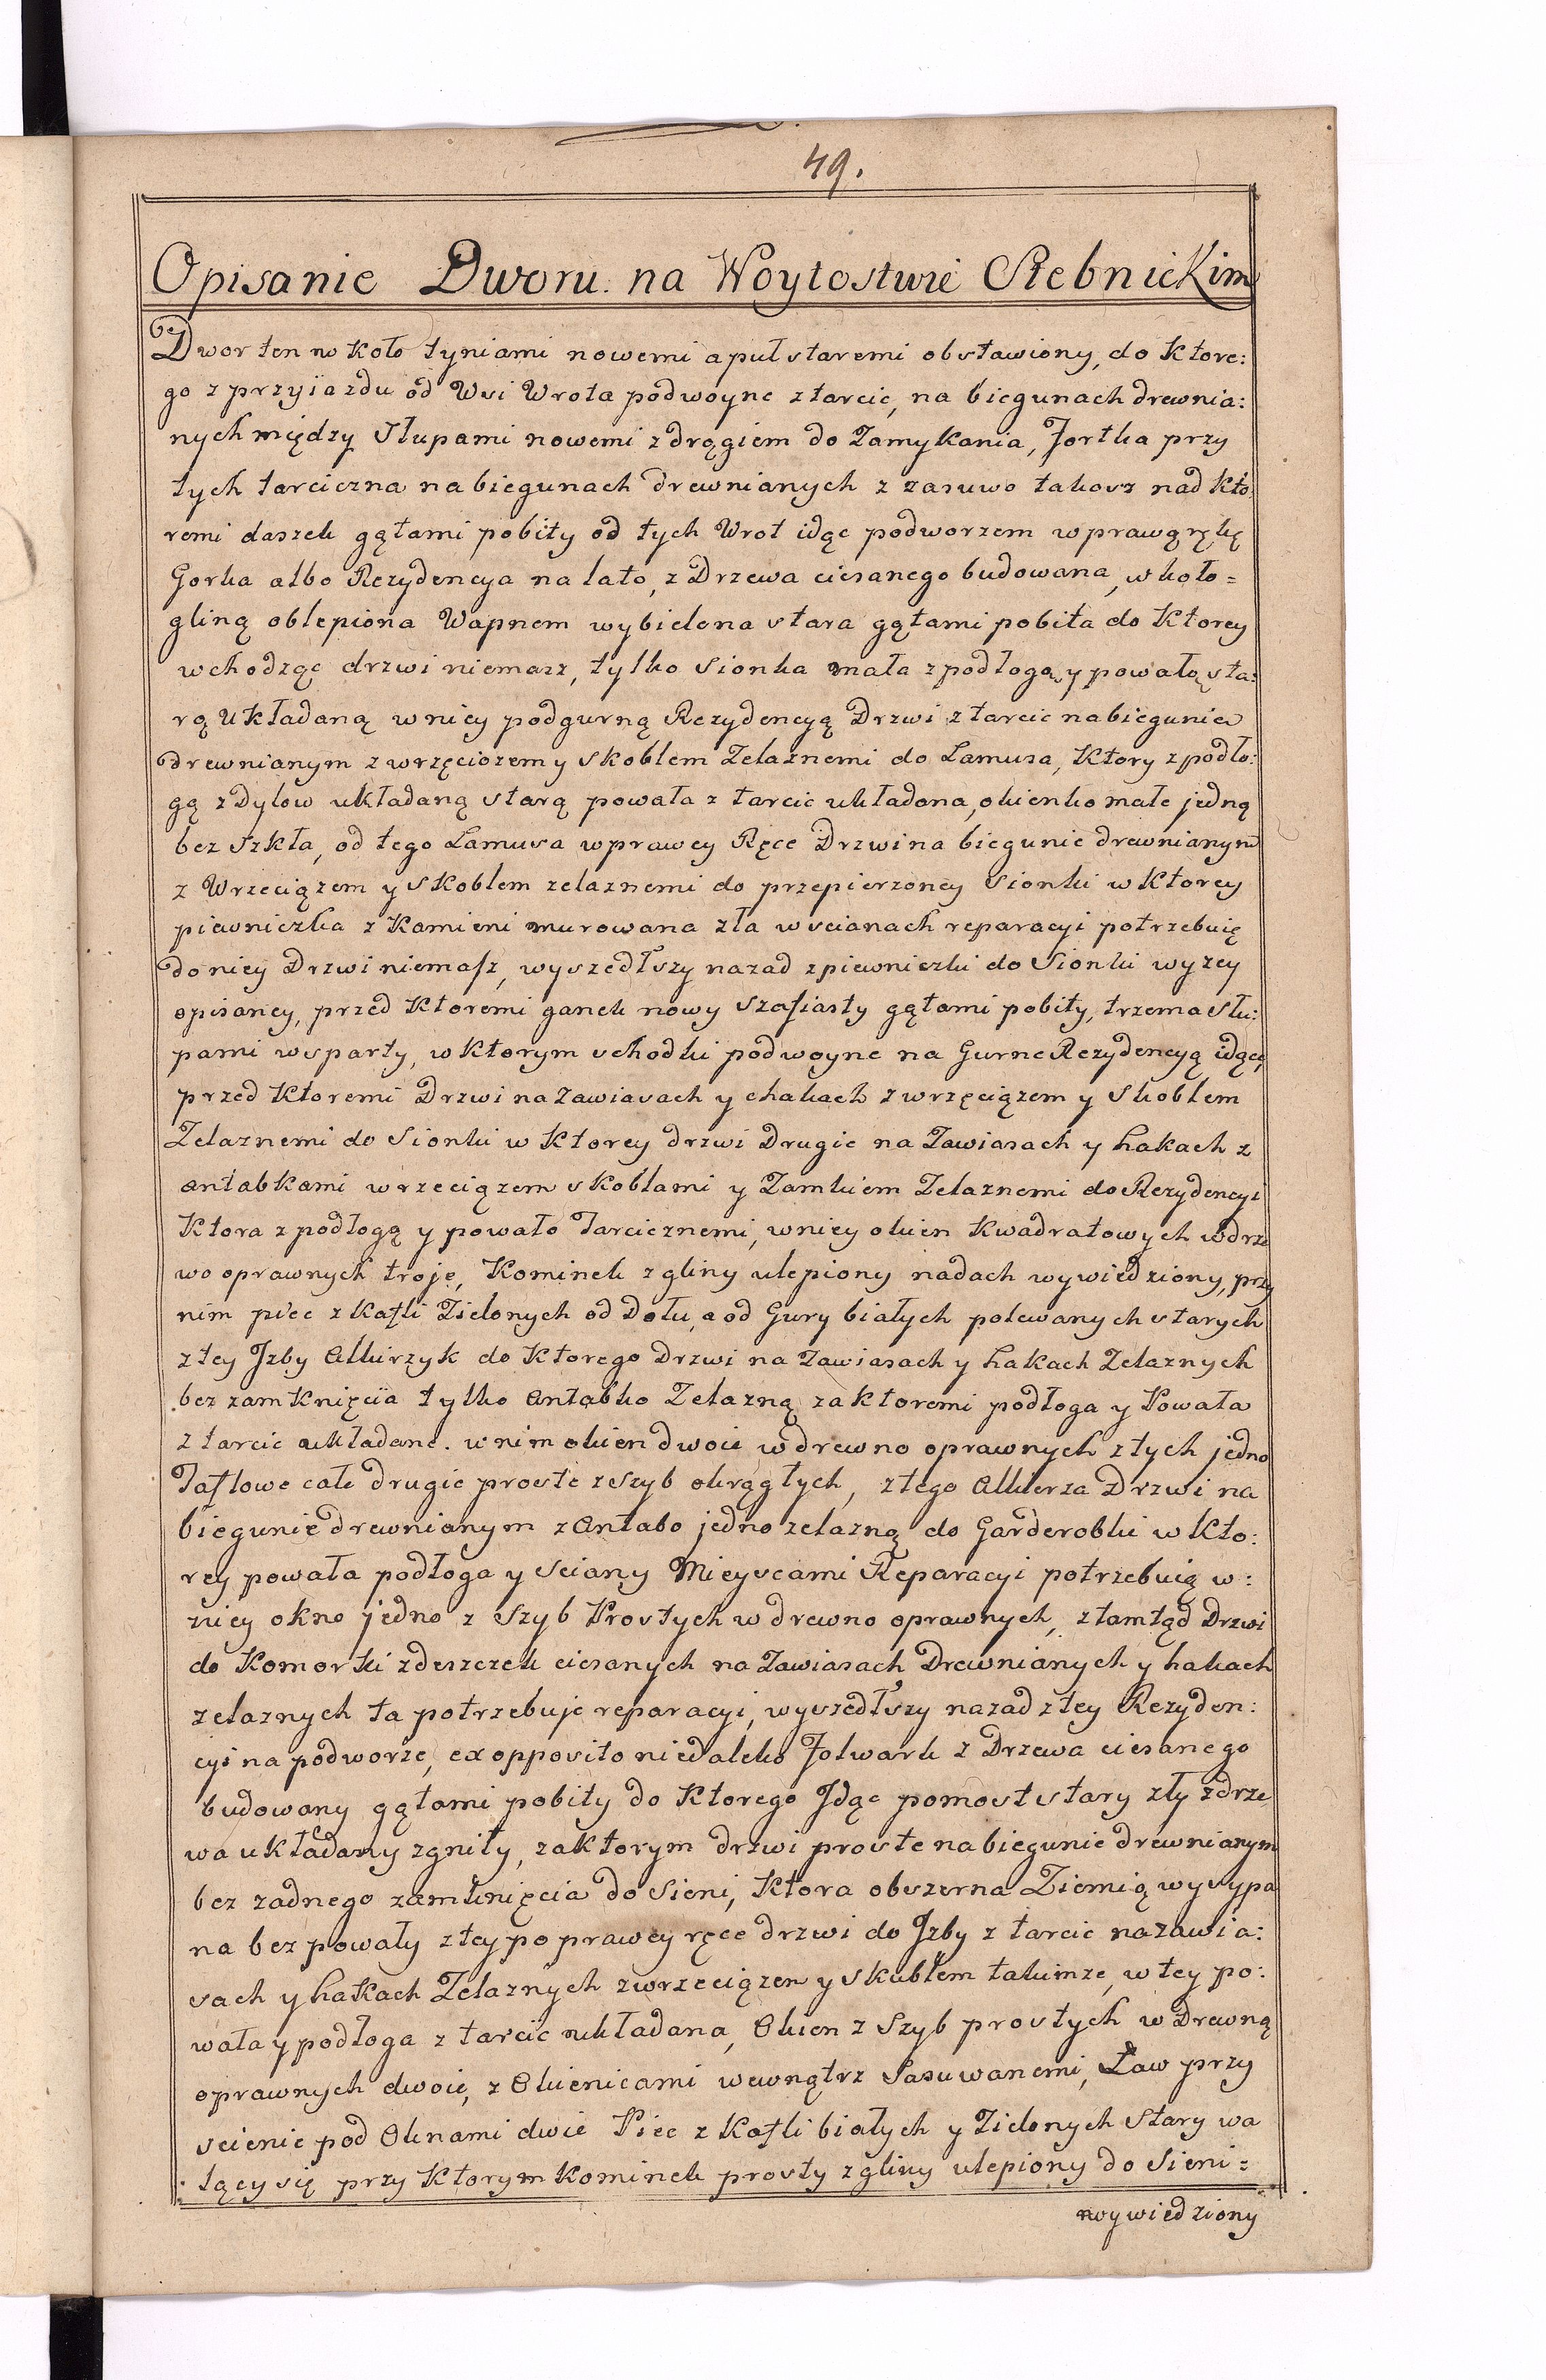 49.
Opisanie Dworu na Woytostwie Stebnickim
Dwor ten w koło tyniami nowemi a puł staremi obstawiony, do ktore:
go z przyiazdu od Wsi Wrota podwoyne z tarcic, na biegunach drewnia:
nych między Słupami nowemi z drągiem do Zamykania, Fortka przy
tych tarciczna na biegunach drewnianych z zasuwo takosz nad kto
remi daszek gątami pobity od tych Wrot idąc podworzem w prawą rękę
Gorka albo Rezydencya na lato, z Drzewa ciesanego budowana, w koło=
gliną oblepiona Wapnem wybielona stara gątami pobita do Ktorey
wchodząc drzwi niemasz, tylko Sionka mała z podłogą y powałą sta:
rą Układaną w niey podgurną Rezydencyą Drzwi z tarcic na biegunie
drewnianym z wrzęciozem y skoblem Zelaznemi do Lamusa, Ktory z podło:
gą z Dylow układaną starą powała z tarcic układona, okienko małe jedną
bez Szkła, od tego Lamusa w prawey Ręce Drzwi na biegunie drewnianym
z Wrzeciązem y skoblem zelaznemi do przepierzoney Sionki w Ktorey
piewniczka z Kamieni murowana zła w scianach reparacyi potrzebuię
do niey Drzwi niemasz, wyszedłszy nazad z piewniczki do Sionki wyzey
opisaney, przed Ktoremi ganek nowy Szasiasty gątami pobity, trzema słu:
pami wsparty, w Ktorym schodki podwoyne na Gurne Rezydencyą idące,
przed Ktoremi Drzwi na zawiasach y chakach z wrzęciązem y Skoblem
Zelaznemi do Sionki w Ktorey drzwi Drugie na Zawiasach y hakach z
antabkami wrzeciązem skoblami y Zamkiem Zelaznemi do Rezydencyi
Ktora z podłogą y powało Tarcicznemi, w niey okien Kwadratowych w drze
wo oprawnych troje, Kominek z gliny ulepiony nadach wywiedziony, przy
nim piec z Kafli Zielonych od Dołu, a od Gury białych polewanych starych
z tey Jzby Alkirzyk do Ktorego Drzwi na Zawiasach y hakach Zelaznych
bez zamknięcia tylko Antabko Zelazną za ktoremi podłoga y Powała
z tarcic układane. w nim okien dwoie w drewno oprawnych z tych jedno
Taflowe całe drugie proste z Szyb okrągłych, z tego Alkierza Drzwi na
biegunie drewnianym z Antabo jedno zelazną do Garderobki w Kto:
rey powała podłoga y sciany Mieyscami Reparacyi potrzebuią w:
niey okno jedno z Szyb Prostych w drewno oprawnych, z tamtąd Drzwi
do Komorki z deszczek ciesanych na Zawiasach Drewnianych y hakach
zelaznych ta potrzebuje reparacyi, wyszedłszy nazad z tey Rezyden:
cyi na podworze, ex opposito niedaleko Folwark z Drzewa ciesanego
budowany gątami pobity do Ktorego Jdąc pomost stary zły z drze,
wa układany zgniły, za ktorym drzwi proste na biegunie drewnianym
bez zadnego zamknięcia do Sieni, Ktora obszerna Ziemią wysypa
na bez powały z tey po prawey ręce drzwi do Jzby z tarcic na zawia:
sach y hakach Zelaznych z wrzeciązem y skublem takimze, w tey po:
wała y podłoga z tarcic układana, Okien z Szyb prostych w Drewną
oprawnych dwoie, z Okienicami wewnątrz Sasuwanemi, Ław przy
scienie pod Oknami dwie Piec z Kafli białych y Zielonych Stary wa
lący się przy Ktorym Kominek prosty z gliny ulepiony do Sieni=
wywiedziony